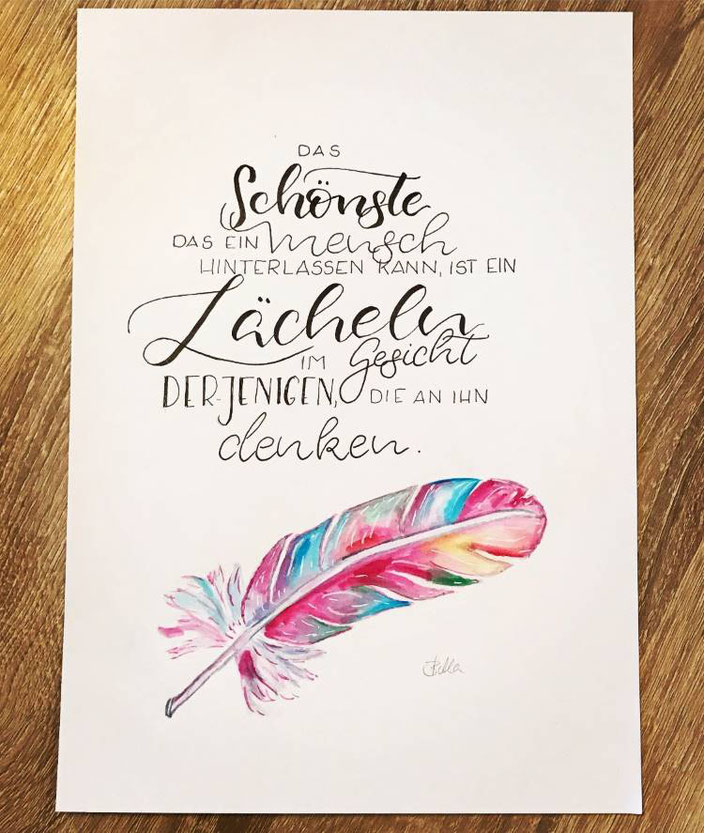 DAS
Schönste
DAS EIN Mensch
HINTERLASSEN KANN, IST EIN
Lächeln
IM Gesicht
DERJENIGEN, DIE AN IHN
denken.